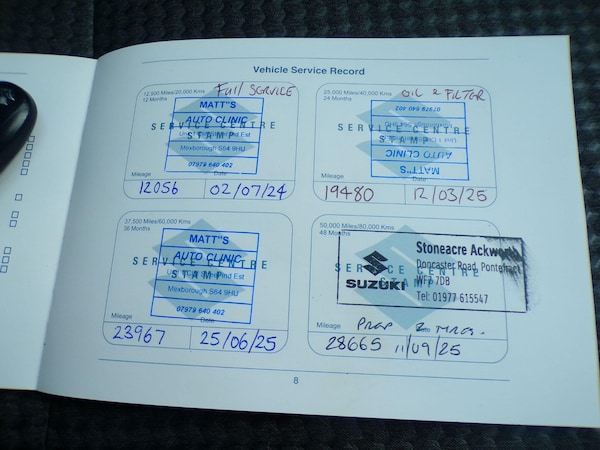 Vehicle Service Record
12,500 Miles/20,000 Kms
12 Months
Full SERVICE
MATT"S
AUTO CLINIC
SERVICE CENTRE
STAMP
Mexborough S64 9HU
07979 640 402
Mileage
Date
12056
02/07/24
25,000 Miles/40,000 Kms
24 Months
OIL & FILTER
MATT"S
AUTO CLINIC
SERVICE CENTRE
STAMP
07979 640 402
Mileage
Date
19480
12/03/25
37,500 Miles/60,000 Kms
36 Months
MATT"S
AUTO CLINIC
SERVICE CENTRE
STAMP
Mexborough S64 9HU
07979 640 402
Mileage
Date
23967
25/06/25
50,000 Miles/80,000 Kms
48 Months
SERVICE CENTRE
STAMP
SUZUKI
Stoneacre Ackworth
Doncaster Road, Pontefract
WF7 7DB
Tel: 01977 615547
Mileage
Date
28665
11/09/25
8